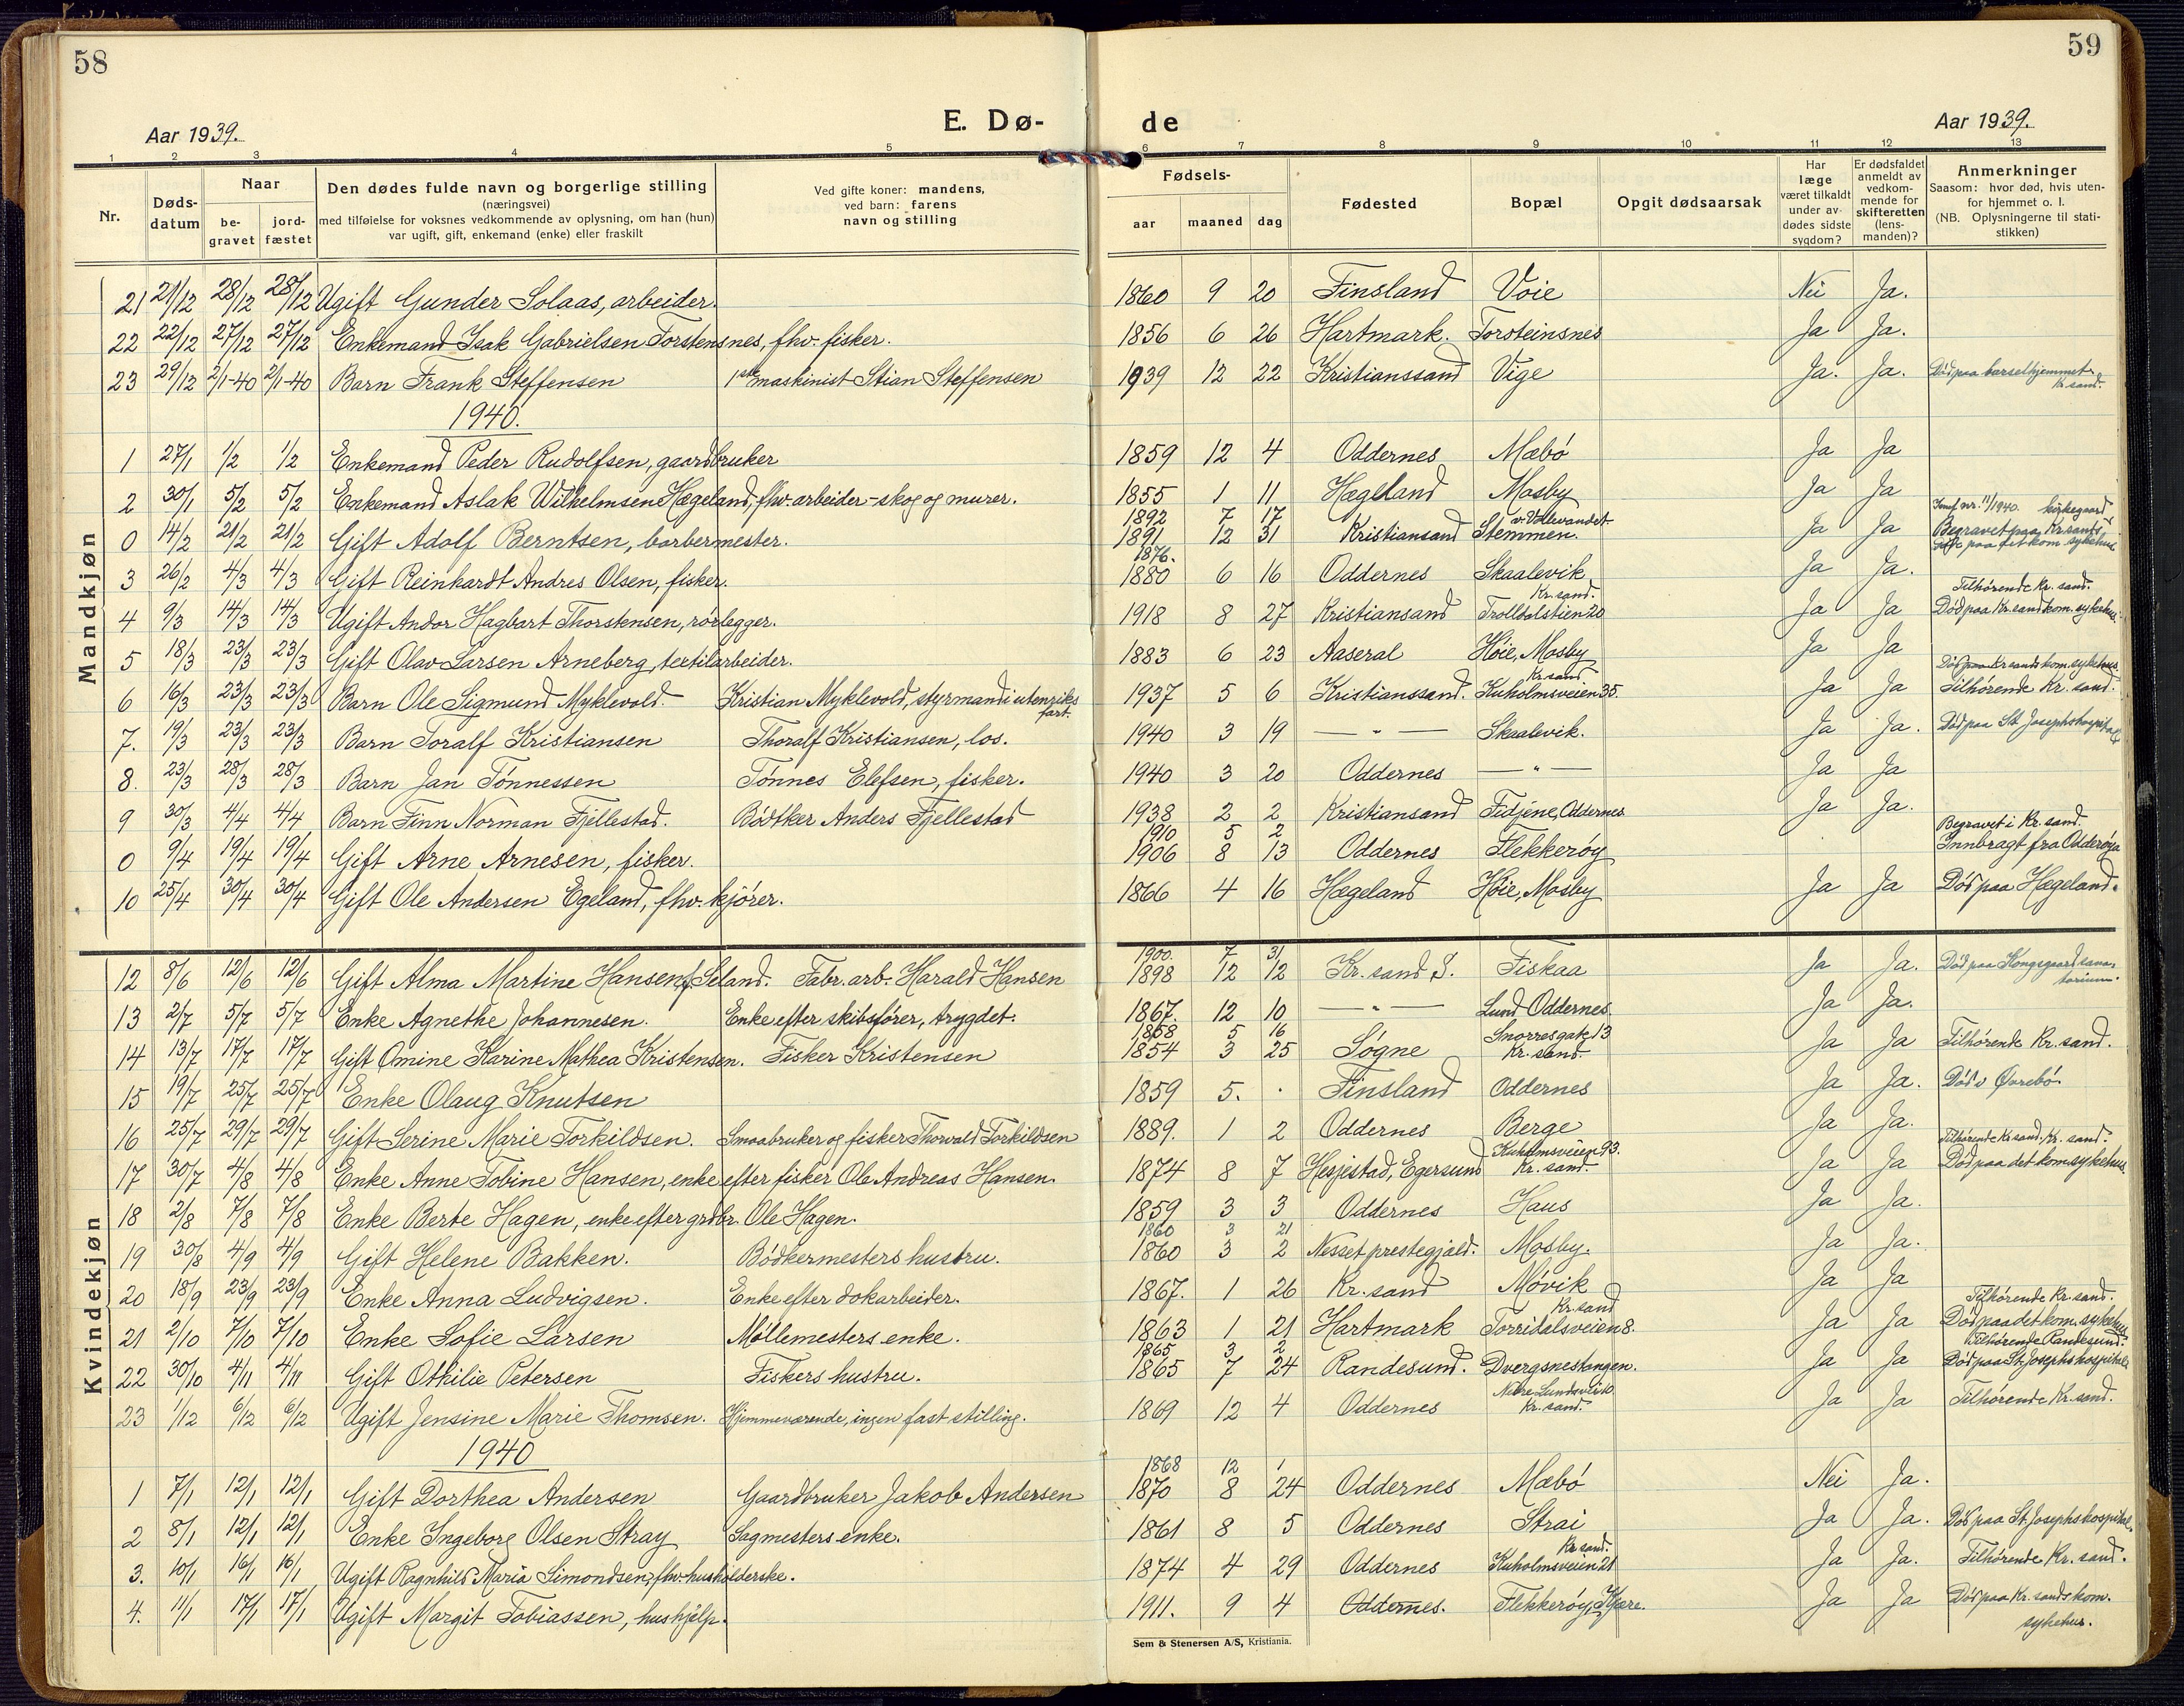 58
59
Aar 1939.
E. Dø-
de
Aar 1939.
1 2 3 4 5 6 7 8 9 10 11 12 13
Nr.
Døds-
datum
Naar
be-
gravet
jord-
fæstet
Den dødes fulde navn og borgerlige stilling
(næringsvei)
med tilføielse for voksnes vedkommende av oplysning, om han (hun)
var ugift, gift, enkemand (enke) eller fraskilt
Ved gifte koner: mandens,
ved barn: farens
navn og stilling
Fødsels-
aar maaned dag
Fødested
Bopæl
Opgit dødsaarsak
Har
læge
været tilkaldt
under av-
dødes sidste
sygdom?
Er dødsfaldet
anmeldt av
vedkom-
mende for
skifteretten
(lens-
manden)?
Anmerkninger
Saasom: hvor død, hvis uten-
for hjemmet o. l.
(NB. Oplysningerne til stati-
stikken)
Mandkjøn
21 21/12 28/12 28/12 Ugift Gunder Solaas, arbeider. 1860 9 20 Finsland Voie Nei Ja.
22 22/12 27/12 27/12 Enkemand Isak Gabrielsen Torstensnes, fhv. fisker. 1856 6 26 Hartmark. Torsteinsnes Ja Ja.
23 29/12 2/1-40 2/1-40 Barn Frank Steffensen 1ste maskinist Stian Steffensen 1939 12 22 Kristianssand Vige Ja. Ja. Død paa barselhjemmet
Kr.sand.
1940.
1 27/1 1/2 1/2 Enkemand Peder Rudolfsen, gaardbruker 1859 12 4 Oddernes Mæbø Ja Ja
2 30/1 5/2 5/2 Enkemand Aslak Wilhelmsen Hægeland, fhv. arbeider - skog og murer. 1855 1 11 Hægeland Mosby Ja Ja
1892 7 17 v. Vollevandet kirkegaard
0 14/2 21/2 21/2 Gift Adolf Berntsen, barbermester. 1891 12 31 Kristiansand Stemmen. Ja Ja Begravet paa Kr.sands
1876.
3 26/2 4/3 4/3 Gift Reinhardt Andres Olsen, fisker. 1880 6 16 Oddernes Skaalevik Ja Ja.
Kr.sand. Tilhørende Kr.sand.
4 9/3 14/3 14/3 Ugift Andor Hagbart Thorstensen, rørlegger. 1918 8 27 Kristiansand Trolldalstien 20 Ja Ja Død paa Kr.sand kom. sykehus.
5 18/3 23/3 23/3 Gift Olav Larsen Arneberg, textilarbeider. 1883 6 23 Aaseral Høie, Mosby Ja Ja
Kr.sand Død paa Kr.sands kom. sykehus
6 16/3 23/3 23/3 Barn Ole Sigmund Myklevold. Kristian Myklevold, styrmand i utenriks
fart. 1937 5 6 Kristianssand. Kuholmsveien 35. Ja Ja Tilhørende Kr.sand.
7. 19/3 23/3 23/3 Barn Toralf Kristiansen Thoralf Kristiansen, los. 1940 3 19 — " — Skaalevik. Ja Ja. Død paa St. Josephshospital
8. 23/3 28/3 28/3 Barn Jan Tønnessen Tønnes Elefsen, fisker. 1940 3 20 Oddernes — " — Ja Ja
9 30/3 4/4 4/4 Barn Finn Norman Fjellestad. Bødtker Anders Fjellestad 1938 2 2 Kristiansand Fidjene, Oddernes Ja Ja.
1910 5 2 Begravet i Kr.sand.
0 9/4 19/4 19/4 Gift Arne Arnesen, fisker. 1906 8 13 Oddernes Flekkerøy Innbragt fra Odderøya
10 25/4 30/4 30/4 Gift Ole Andersen Egeland, fhv. kjører. 1866 4 16 Hægeland Høie, Mosby Ja Ja Død paa Hægeland.
Kvindekjøn
1900. 7 31
12 8/6 12/6 12/6 Gift Alma Martine Hansen f. Seland. Fabr. arb. Harald Hansen 1898 12 12 Kr.sand S. Fiskaa Ja Ja. Død paa Kongsgaard sana-
torium.
13 2/7 5/7 5/7 Enke Agnethe Johannesen. Enke efter skibsfører, trygdet. 1867. 12 10 — " — Lund Oddernes Ja Ja.
1858 5 16 Snorresgate 13
14 13/7 17/7 17/7 Gift Omine Karine Mathea Kristensen. Fisker Kristensen 1854 3 25 Søgne Kr.sand Ja Ja Tilhørende Kr.sand.
15 19/7 25/7 25/7 Enke Olaug Knutsen 1859 5. Finsland Oddernes Ja Ja. Død i Øvrebø
16 25/7 29/7 29/7 Gift Serine Marie Torkildsen. Smaabruker og fisker Thorvald Torkildsen 1889. 1 2 Oddernes Berge Ja Ja.
Kuholmsveien 93. Tilhørende Kr.sand. Kr.sand.
17 30/7 4/8 4/8 Enke Anne Tobine Hansen, enke efter fisker Ole Andreas Hansen. 1874 8 7 Hesjestad, Egersund Kr.sand. Ja Ja Død paa det kom. sykehus
18 2/8 7/8 7/8 Enke Berte Hagen, enke efter grdbr. Ole Hagen. 1859 3 3 Oddernes Haus Ja Ja.
1860 3 21
19 30/8 4/9 4/9 Gift Helene Bakken. Bødkermesters hustru. 1860 3 2 Nesset prestegjæld. Mosby. Ja Ja.
20 18/9 23/9 23/9 Enke Anna Ludvigsen. Enke efter dokarbeider. 1867. 1 26 Kr.sand Møvik Ja Ja
Kr.sand Tilhørende Kr.sand.
21 2/10 7/10 7/10 Enke Sofie Larsen Møllemesters enke. 1863 1 21 Hartmark Torridalsveien 8. Ja Ja Død paa det kom. sykehus
1865 3 2 Tilhørende Randesund.
22 30/10 4/11 4/11 Gift Othilie Petersen Fiskers hustru. 1865 7 24 Randesund. Dvergsnestangen. Ja Ja Død paa St. Josephs hospital
Nedre Lundsvei
23 1/12 6/12 6/12 Ugift Jensine Marie Thomsen. Hjemmeværende, ingen fast stilling. 1869 12 4 Oddernes Kr.sand. Ja Ja Tilhørende Kr.sand.
1940
1868 12 1
1 7/1 12/1 12/1 Gift Dorthea Andersen Gaardbruker Jakob Andersen 1870 8 24 Oddernes Mæbø Nei Ja.
2 8/1 12/1 12/1 Enke Ingeborg Olsen Stray Sagmesters enke. 1861 8 5 Oddernes Strai Ja Ja. Død paa St. Josephshospital.
Kr.sand.
3. 10/1 16/1 16/1 Ugift Ragnhild Maria Simondsen, fhv. husholderske. 1874 4 29 Oddernes Kuholmsveien 21 Ja Ja. Tilhørende Kr.sand.
4. 11/1 17/1 17/1 Ugift Margit Tobiassen, hushjelp. 1911. 9 4 Oddernes. Flekkerøy, Kjære. Ja Ja Død paa Kr.sands kom.
sykehus.
Sem & Stenersen A/S, Kristiania.